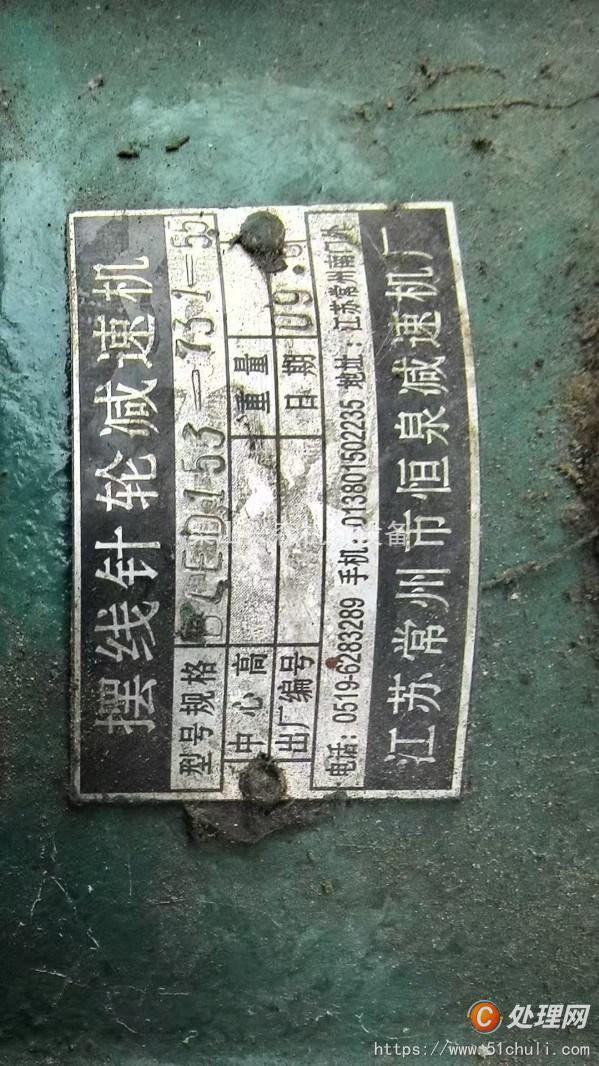 摆线针轮减速机
型号规格 BLED153-731-55
中心高 重量
出厂编号 日期 09.9
电话：0519-6283289 手机：013801502235 地址：江苏常州西门外
江苏常州市恒泉减速机厂
处理网
https://www.51chuli.com